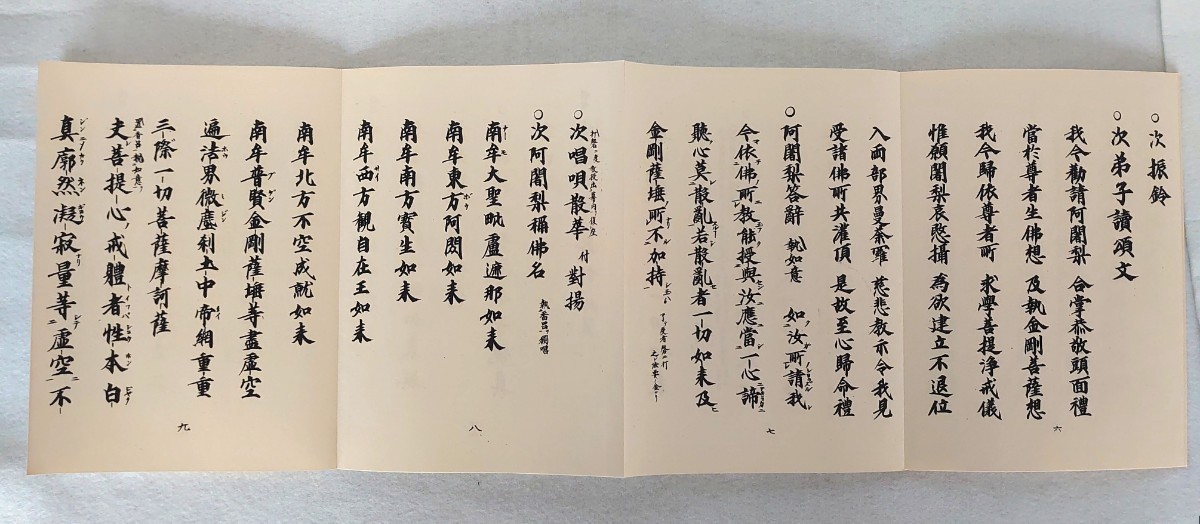 ○次振鈴
○次弟子讀頌文
我今勸請阿闍梨 合掌恭敬頭面禮
當於尊者生佛想 及執金剛菩薩想
我今歸依尊者所 求學菩提淨戒儀
惟願闍梨哀愍攝 為欲建立不退位
六
入両部界曼荼羅 慈悲教示令我見
受諸佛所共灌頂 是故至心歸命禮
○阿闍梨答辭 執如意 如汝所請我
今依佛所教能授與汝應當一心諦
聴心莫散亂若散亂者一切如来及
金剛薩埵所不加持
七
○次唱唄散華 付 對揚
○次阿闍梨稱佛名 執香呂獨唱
南牟大聖毗盧遮那如来
南牟東方阿閦如来
南牟南方寶生如来
南牟西方觀自在王如来
八
南牟北方不空成就如来
南牟普賢金剛薩埵等盡虛空
遍法界微塵刹土中帝網重重
三際一切菩薩摩訶薩
置香呂執如意
夫菩提心戒體者性本白
真廓然凝寂量等虛空不
九